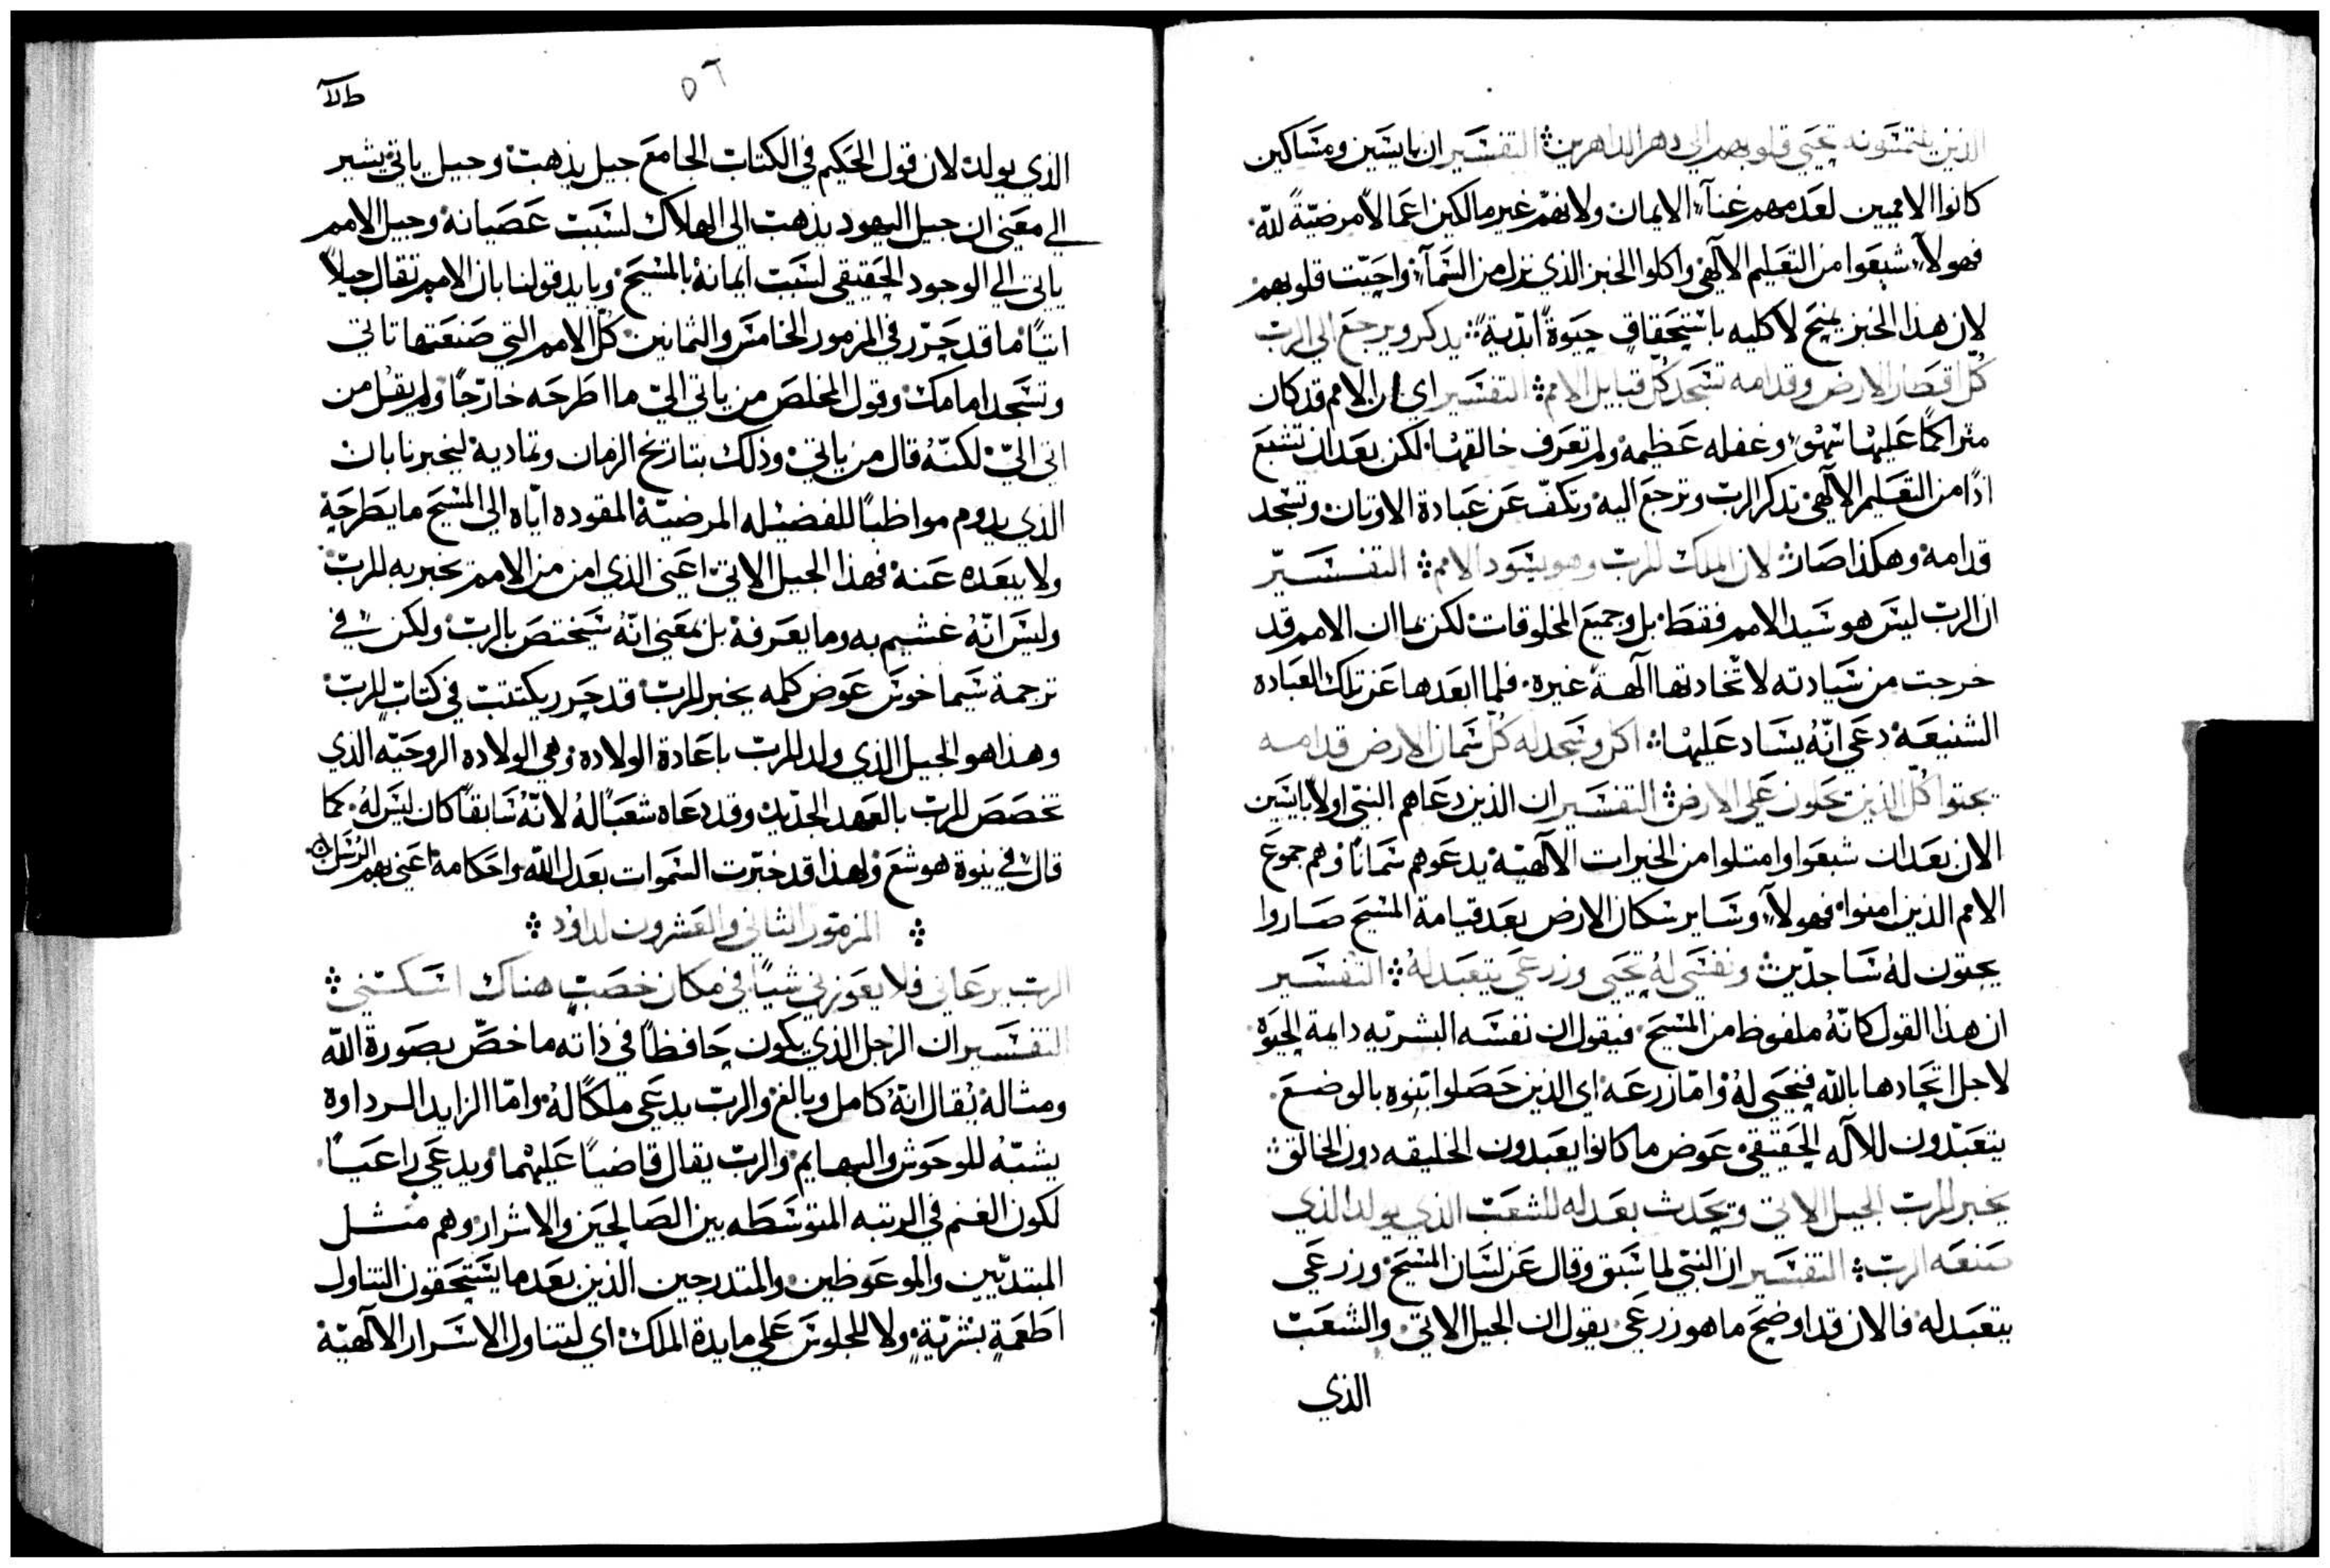 الذين يلتمسونه تحيى قلوبهم الي دهر الداهرين التفسير ان بايسين ومساكين
كانوا الامميين لعدمهم غناء الايمان ولانهم غير مالكين اعمالاً مرضيّةً لله.
فهولآء شبعوا من التعليم الآلهي واكلوا الخبز الذي نزل من السمآء واحيّت قلوبهم
لان هذا الخبز يمنح لاكليه باستحقاقٍ حيوةً ابديةً يدكر ويرجع الي الربّ
كلّ اقطار الارض وقدامه تسجد كلّ قبايل الامم التفسير اي ان الامم قد كان
متراكمًا عليها سهوٌ وغفله عظيمه ولم تعرف خالقها لكن بعد ان تشبع
اذًا من التعليم الآلهي تدكر الربّ وترجع اليه وتكفّ عن عبادة الاوتان وتسجد
قدامه وهكذا صار لان الملك للربّ وهو يسود الامم التفسيّر
ان الربّ ليس هو سيد الامم فقط بل وجميع المخلوقات لكن بما ان الامم قد
خرجت من سيادته لاتّخادتها آلهةً غيره فلما ابعدها عن تلك العباده
الشنيعه دعي انّهُ يساد عليها اكل وسجد له كلّ سمان الارض قدامه
يجتوا كلّ الذين يحلون علي الارض التفسير ان الذين دعاهم النبيّ اولاً بايسين
الان بعد ان شبعوا وامتلوا من الخيرات الآلهيّه يدعوهم سمانًا وهم جموع
الامم الذين امنوا فهولآء وساير سكان الارض بعد قيامة المسيح صاروا
يجتون له ساجدّين ونفسي لهُ تحيي وزرعي يتعبد لهُ التفسير
ان هذا القول كانّهُ ملفوظ من المسيح فيقول ان نفسه البشريّه دايمة الحيوة
لاجل اتحادها بالله فتحيي لهُ وامّا زرعه اي الذين حصلوا بنوه بالوضع
يتعبّدون للآله الحقيقي عوض ما كانوا يعبدون الخليقه دون الخالق
يخبر للربّ الجيل الاتي ويحدث بعدله للشعب الذي يولد الذي
صنعه الربّ التفسير ان النبيّ لما سبق وقال عن لسان المسيح وزرعي
يتعبد له فالان قد اوضح ما هو زرعي يقول ان الجيل الاتي والشعب
الذي
٥٦
الذي يولد لان قول الحكيم في الكتاب الجامع جيل يذهب وجيل ياتي يشير
الي معني ان جيل اليهود يذهب الي الهلاك لسبب عصيانه وجيل الامم
ياتي الي الوجود الحقيقي لسبب ايمانه بالمسيح ويايد قولنا بان الامم تقال جيلاً
اتيًا ما قد حرّر في المزمور الخامس والثمانين كلّ الامم التي صنعتها تاتي
وتسجد امامك وقول المخلص من ياتي اليّ ما اطرحه خارجًا ولم يقل من
اتي اليّ لكنّهُ قال من ياتي وذلك بتاريخ الزمان وتماديه ليخبرنا بان
الذي يدوم مواظبًا للفضيله المرضيّة المقوده ايّاه الي المسيح ما يطرحه
ولا يبعده عنه فهذا الجيل الاتي اعني الذي امن من الامم يخبر به للربّ
وليس انّهُ غشيم به وما يعرفه بل بمعني انّهُ سيختص بالربّ ولكن في
ترجمة سيماخوس عوض كلمه يخبر للربّ قد حرر يكتتب في كتاب للربّ
وهذا هو الجيل الذي ولد للربّ باعادة الولاده وهي الولاده الروحيّه الذي
تخصص للربّ بالعهد الجديد وقد دعاه شعبًا لهُ لانّهُ سابقًا كان ليس لهُ. كما
قال في نبوة هوشع ولهذا قد خبّرت السموات بعدل الله واحكامه اعني بهم الرسل
المزمور الثاني والعشرون لداوُد
الرب يرعاني فلا يعوزني شيًا في مكان خصبٍ هناك اسكنني
التفسير ان الرجل الذي يكون حافظًا في ذاته ما خصّ بصورة الله
ومثاله يُقال انّهُ كامل وبالغ والرب يدعي ملكًا لهُ وامّا الزايد الرداوة
يشبّه للوحوش والبهايم والربّ يقال قاضيًا عليهما ويدعي راعيًا
لكون الغنم في الرتبه المتوسطه بين الصالحين والاشرار وهم مثل
المبتديّين والموعوظين والمتدرجين الذين بعد ما يستحقون التناول
اطعمةٍ بشريّةٍ ولا للجلوس علي مايدة الملك اي لتناول الاسرار الآلهيّة